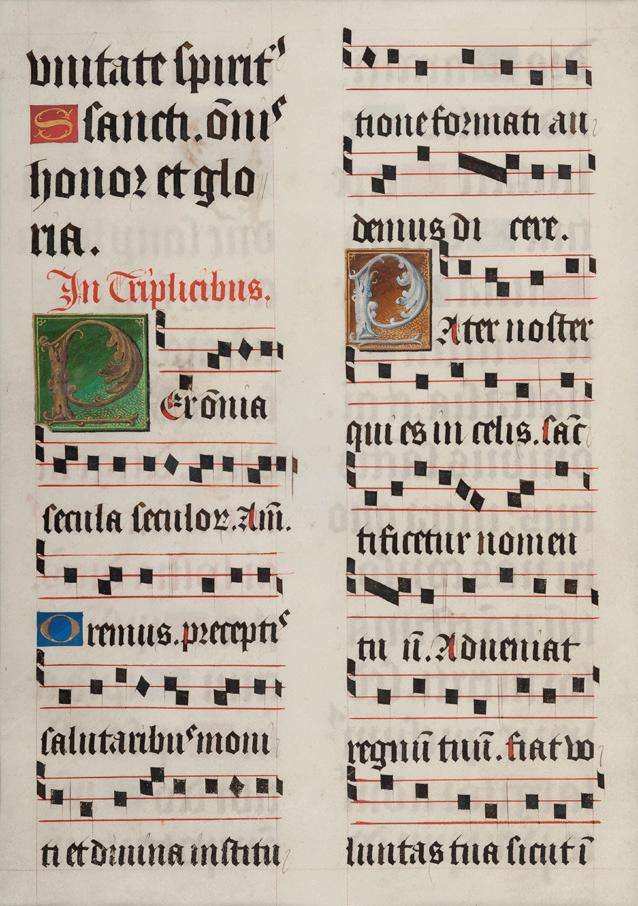 vnitate spirit᾽
Sancti. ōnis
honor et glo
ria.
In Triplicibus.
Per ōnia
secula seculoꝝ. Am̄.
Oremus. preceptis
salutaribus moni
ti et diuina institu
tione formati au
demus di cere.
Pater noster
qui es in celis. sāc
tificetur nomen
tu ū. Adueniat
regnū tuū. fiat vo
luntas tua sicut ī